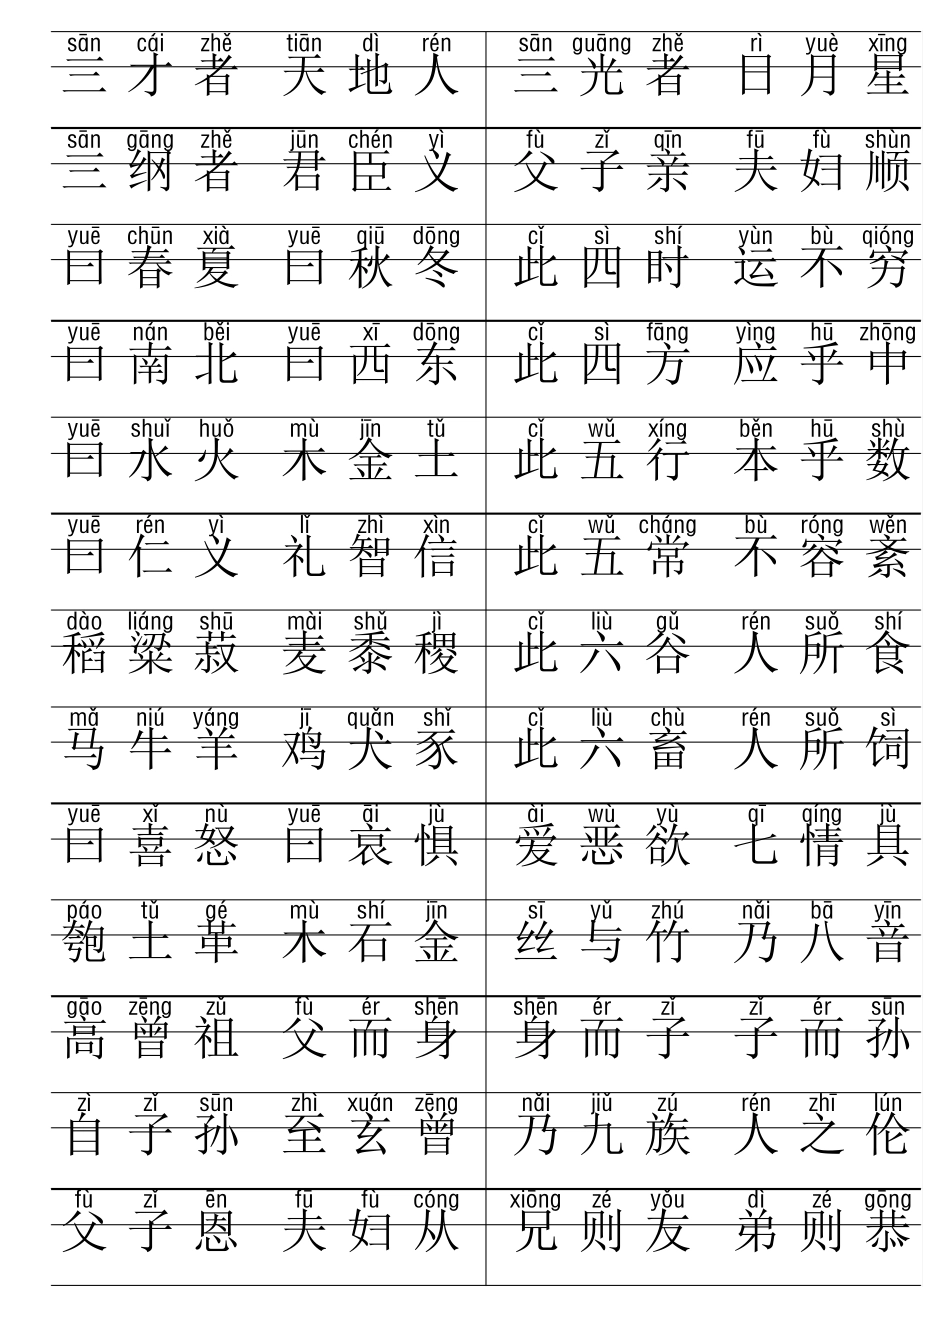 sān cái zhě tiān dì rén sān guāng zhě rì yuè xīng
三才者 天地人 三光者 日月星
sān gāng zhě jūn chén yì fù zǐ qīn fū fù shùn
三纲者 君臣义 父子亲 夫妇顺
yuē chūn xià yuē qiū dōng cǐ sì shí yùn bù qióng
曰春夏 曰秋冬 此四时 运不穷
yuē nán běi yuē xī dōng cǐ sì fāng yìng hū zhōng
曰南北 曰西东 此四方 应乎中
yuē shuǐ huǒ mù jīn tǔ cǐ wǔ xíng běn hū shù
曰水火 木金土 此五行 本乎数
yuē rén yì lǐ zhì xìn cǐ wǔ cháng bù róng wěn
曰仁义 礼智信 此五常 不容紊
dào liáng shū mài shǔ jì cǐ liù gǔ rén suǒ shí
稻粱菽 麦黍稷 此六谷 人所食
mǎ niú yáng jī quǎn shǐ cǐ liù chù rén suǒ sì
马牛羊 鸡犬豕 此六畜 人所饲
yuē xǐ nù yuē āi jù ài wù yù qī qíng jù
曰喜怒 曰哀惧 爱恶欲 七情具
páo tǔ gé mù shí jīn sī yǔ zhú nǎi bā yīn
匏土革 木石金 丝与竹 乃八音
gāo zēng zǔ fù ér shēn shēn ér zǐ zǐ ér sūn
高曾祖 父而身 身而子 子而孙
zì zǐ sūn zhì xuán zēng nǎi jiǔ zú rén zhī lún
自子孙 至玄曾 乃九族 人之伦
fù zǐ ēn fū fù cóng xiōng zé yǒu dì zé gōng
父子恩 夫妇从 兄则友 弟则恭